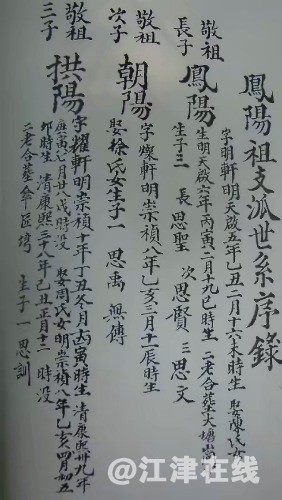 鳳陽祖支派世系序錄
敬祖
長子
鳳陽
字明軒明天啟五年乙丑二月十六未時生 娶陳氏女
生明天啟六年丙寅二月十九巳時生 二老合葬大塘
生子三 長 思聖 次 思賢 三 思文
敬祖
次子
朝陽
字燦軒明崇禎八年乙亥三月十一辰時生
娶徐氏女生子一 思禹 無傳
敬祖
三子
拱陽
字耀軒明崇禎十年丁丑冬月丙寅時生 清康熙卅九年
庚寅七月廿八戌時没 娶周氏女明崇禎八年乙亥四月初五
卯時生 清康熙三十八年己丑正月十二 時没
二老合葬傘匠灣 生子一 思訓
@江津在线